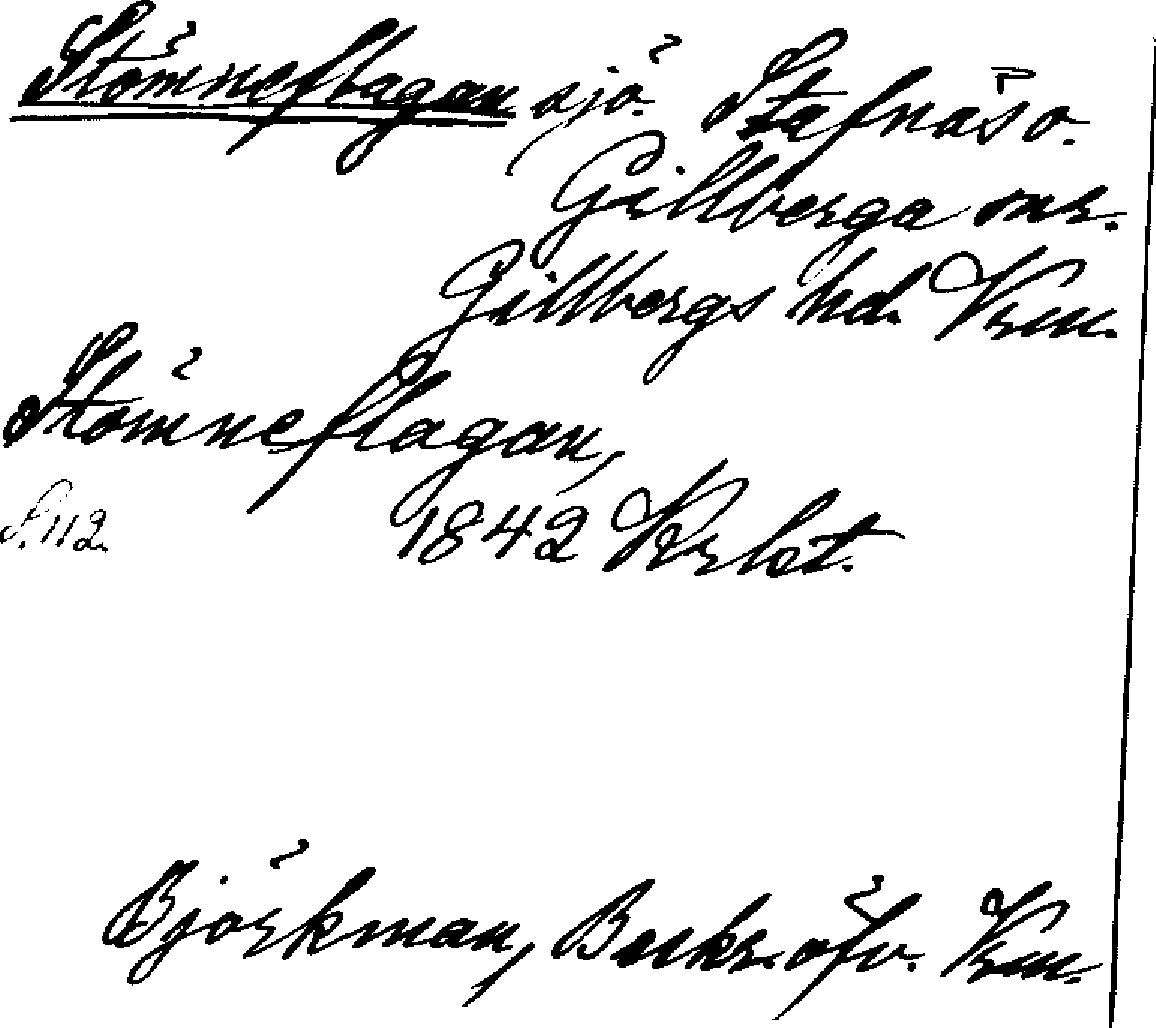 Stömneflagan sjö. Stafnäs o.
Gillberga snr.
Gillbergs hd. Vrm.
Stömneflagan,
S. 112. 1842
Björkman, Beskr. öfv. Vrm.